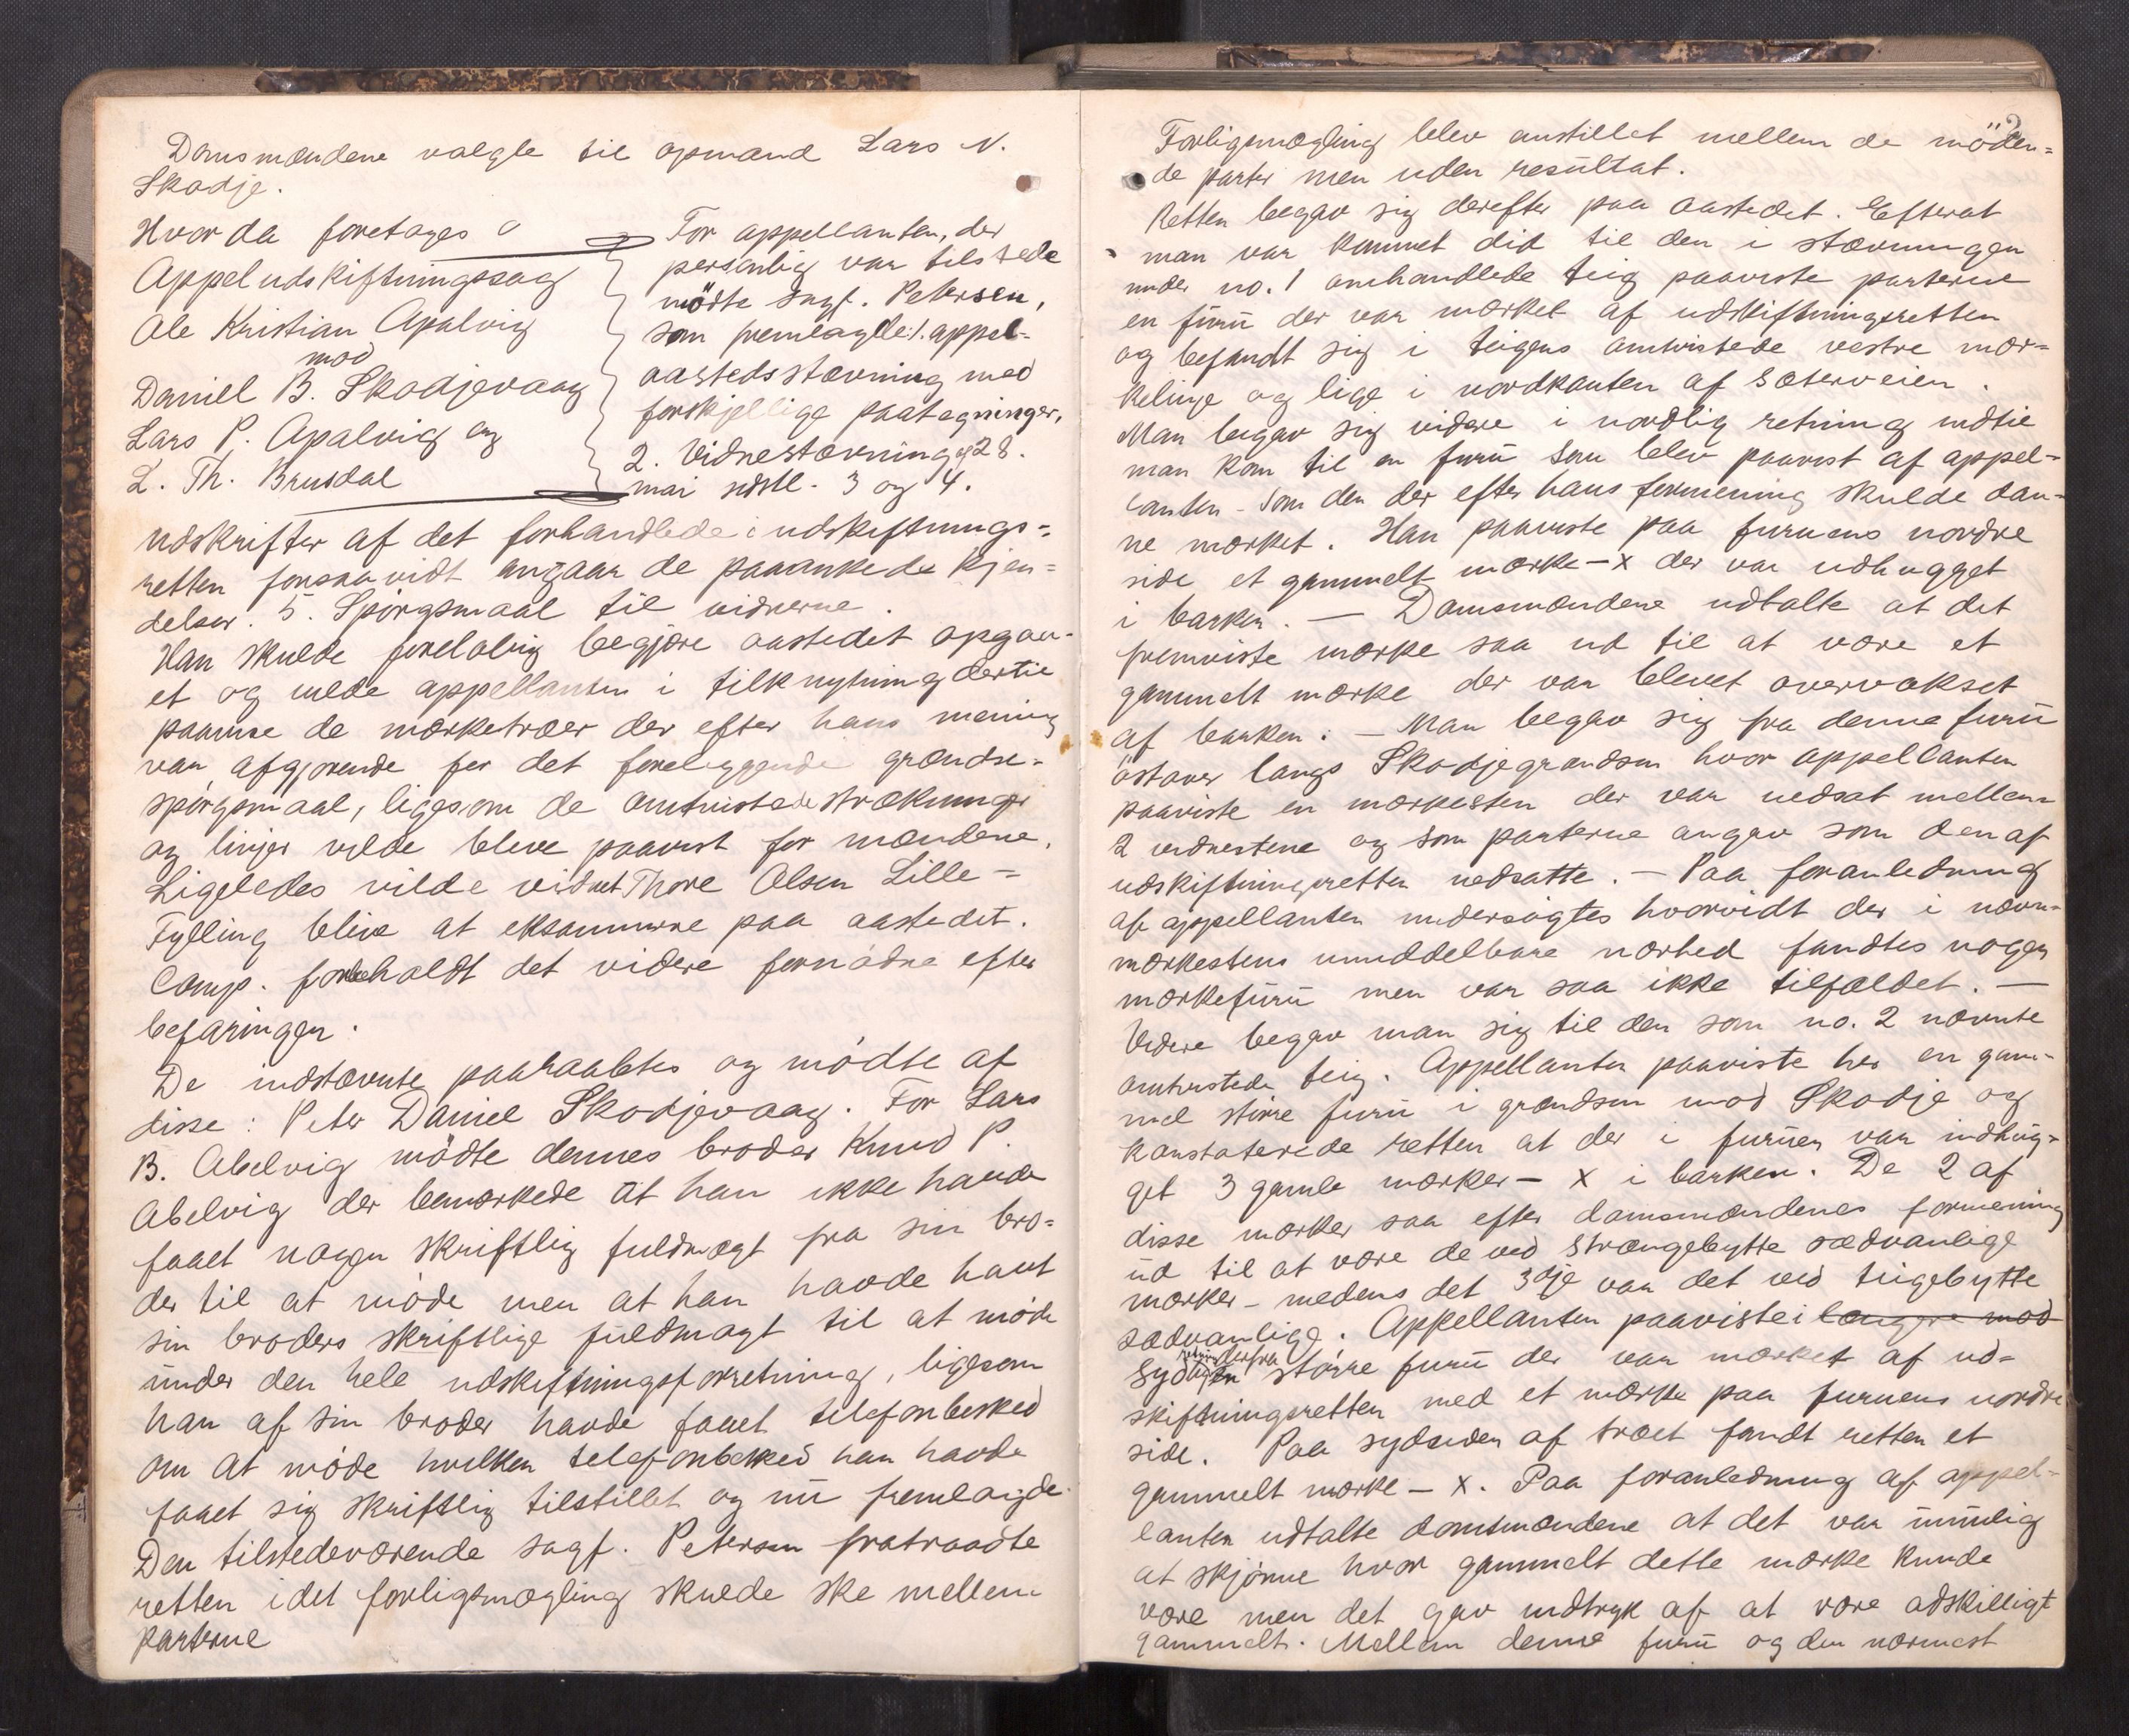 Domsmændene valgte til opmand Lars N.
Skodje.
Hvor da foretages
Appeludskiftningssag
Ole Kristian Apalvig
mod
Daniel B. Skodjevaag
Lars P. Apalvig og
L. Th. Brusdal
For appellanten, der
personlig var tilstede
mödte sagf. Petersen,
som fremlagde: 1. appel-
aastedsstævning med
forskjellige paategninger,
2. Vidnestævning af 28.
mai sidstl. 3 og 4.
udskrifter af det forhandlede i udskiftnings=
retten forsaavidt angaar de paaankede kjen=
delser. 5. Spörgsmaal til vidnerne.
Han skulde foreløbig begjære aastedet opgaa-
et og vilde appellanten i tilknytning dertil
paavise de mærketræer der efter hans mening
var afgjørende for det foreliggende grændse-
spörgsmaal, ligesom de omtvistede strækninger
og linjer vilde blive paavist for mændene.
Ligeledes vilde vidnet Thore Olsen Lille=
Fylling blive at eksaminere paa aastedet.
Comp. forbeholdt det videre fornødne efter
befaringen.
De indstævnte paaraabtes og mödte af
disse: Peter Daniel Skodjevaag. For Lars
B. Abelvig mödte dennes broder Knud P.
Abelvig der bemærkede at han ikke havde
faaet nogen skriftlig fuldmagt fra sin bro=
der til at møde men at han havde havt
sin broders skriftlige fuldmagt til at møde
under den hele udskiftningsforretning, ligesom
han af sin broder havde faaet telefonbesked
om at møde hvilken telefonbesked han havde
faaet sig skriftlig tilstillet og nu fremlagde.
Den tilstedeværende sagf. Petersen fratraadte
retten idet forligsmægling skulde ske mellem
parterne
2
Forligsmægling blev anstillet mellem de möden=
de parter men uden resultat.
Retten begav sig derefter paa aastedet. Efterat
man var kommet did til den i stævningen
under no. 1 omhandlede teig paaviste parterne
en furu der var mærket af udskiftningsretten
og befandt sig i teigens omtvistede vestre mær=
kelinje og lige i nordkanten af sæterveien.
Man begav sig videre i nordlig retning indtil
man kom til en furu som blev paavist af appel=
lanten - som den der efter hans formening skulde dan-
ne mærket. Han paaviste paa furuens nordre
side et gammelt mærke - x der var udhugget
i barken. — Domsmændene udtalte at det
fremviste mærke saa ud til at være et
gammelt mærke der var blevet overvokset
af barken. — Man begav sig fra denne furu
östover langs Skodjegrændsen hvor appellanten
paaviste en mærkesten der var nedsat mellem
2 vidnestene og som parterne angav som den af
udskiftningsretten nedsatte. — Paa foranledning
af appellanten undersögtes hvorvidt der i nævn-
mærkestens umiddelbare nærhed fandtes nogen
mærkefuru men var saa ikke tilfældet. —
Videre begav man sig til den som no. 2 nævnte
omtvistede teig. Appellanten paaviste her en gam-
mel större furu i grændsen mod Skodje og
konstaterede retten at der i furuen var indhug=
get 3 gamle mærker - x i barken. De 2 af
disse mærker saa efter domsmændenes formening
ud til at være de ved strængebytte sædvanlige
mærker - medens det 3dje var det ved teigebytte
sædvanlige. Appellanten paaviste i længere mod
sydlig retning derfra en större furu der var mærket af ud-
skiftningsretten med et mærke paa furuens nordre
side. Paa sydsiden af træet fandt retten et
gammelt mærke - x. Paa foranledning af appel=
lanten udtalte domsmændene at det var umulig
at skjönne hvor gammelt dette mærke kunde
være men det gav indtryk af at være adskilligt
gammelt. Mellem denne furu og den nærmest